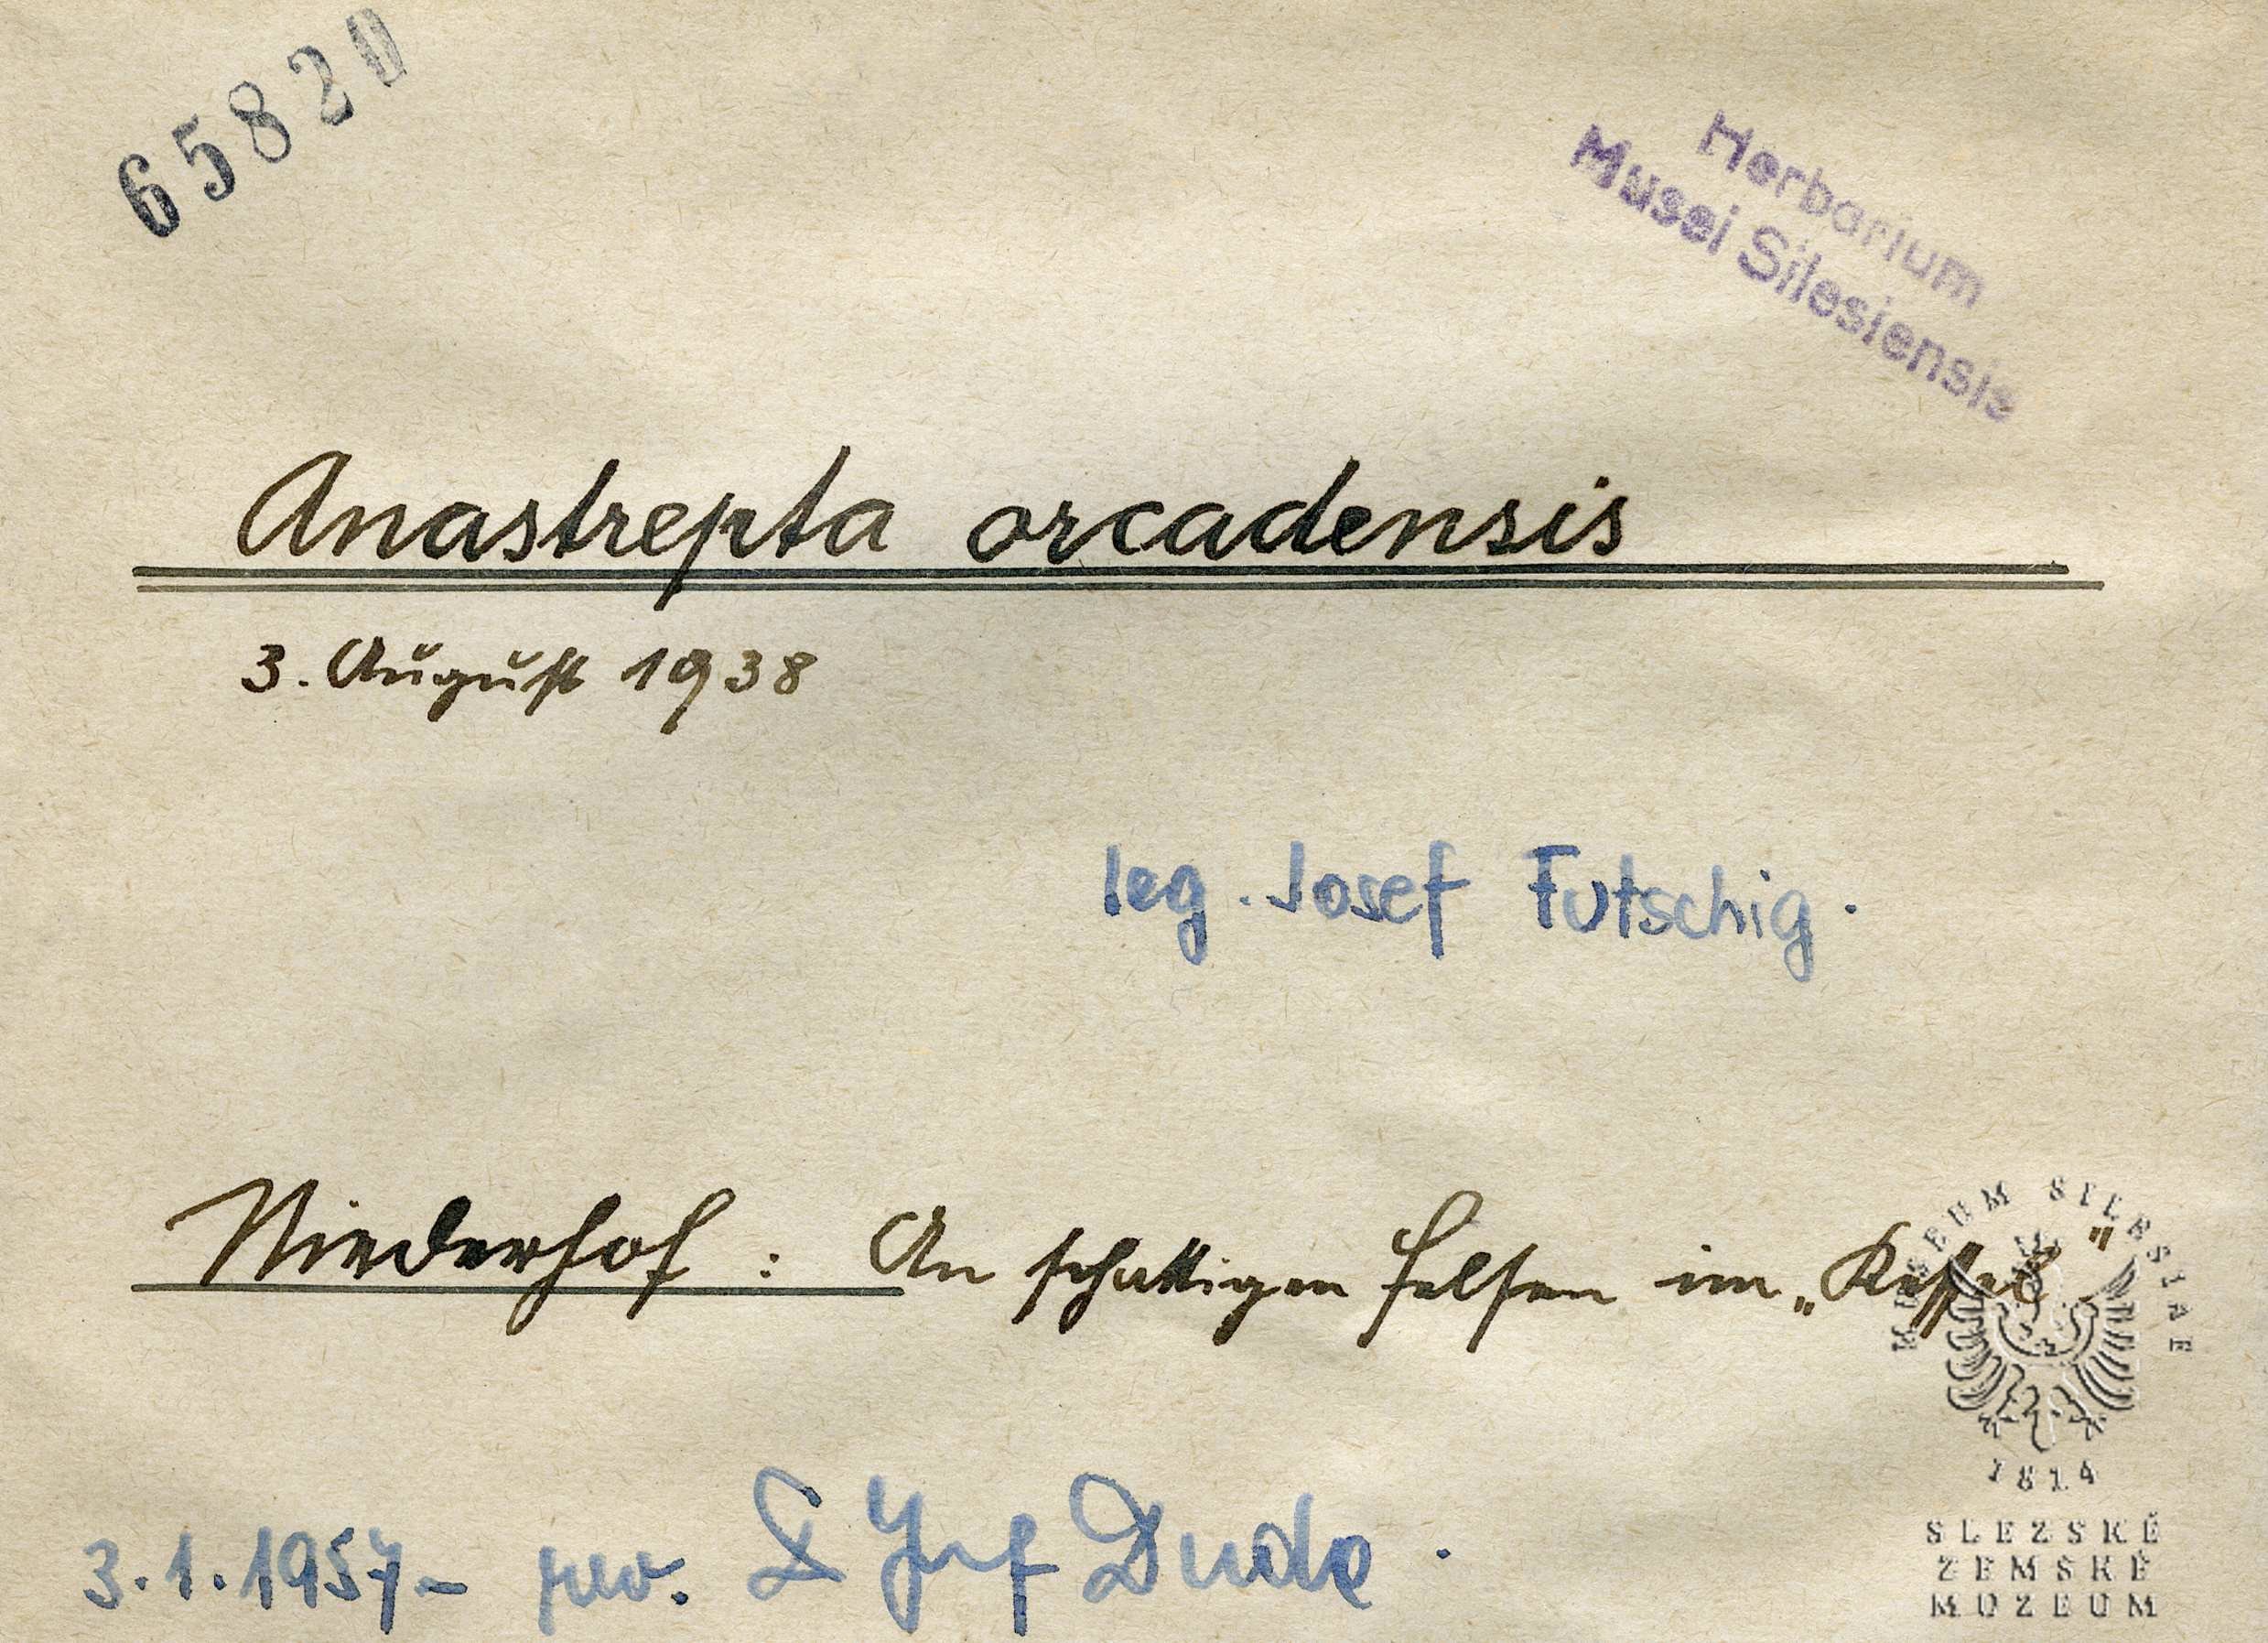 65820
Herbarium
Musei Silesiensis
Anastrepta orcadensis
3. August 1938
leg. Josef Futschig.
Niederhof : An schattigen Felsen im „Kessel"
MUSEUM SILESIAE
1814
SLEZSKÉ
ZEMSKÉ
MUZEUM
3.1.1957- rev. Duda.